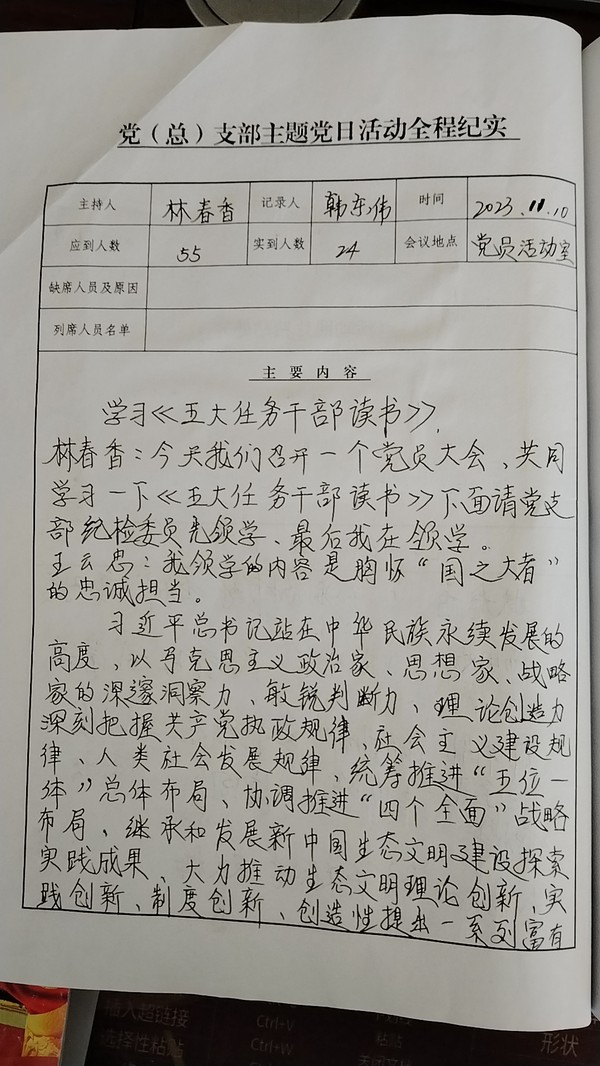 党（总）支部主题党日活动全程纪实
主持人 林春香 记录人 韩东伟 时间 2023.11.10
应到人数 55 实到人数 24 会议地点 党员活动室
缺席人员及原因
列席人员名单
主要内容
学习《五大任务干部读书》，
林春香：今天我们召开一个党员大会、共同
学习一下《五大任务干部读书》下面请党支
部纪检委员先领学、最后我在领学。
王云忠：我领学的内容是胸怀“国之大者”
的忠诚担当。
习近平总书记站在中华民族永续发展的
高度、以马克思主义政治家、思想家、战略
家的深邃洞察力、敏锐判断力、理论创造力
深刻把握共产党执政规律、社会主义建设规
律、人类社会发展规律、统筹推进“五位一
体”总体布局、协调推进“四个全面”战略
布局、继承和发展新中国生态文明建设探索
实践成果、大力推动生态文明理论创新、实
践创新、制度创新、创造性提出一系列富有
插入超链接 Ctrl+V 粘贴 形状
选择性粘贴 Ctrl+